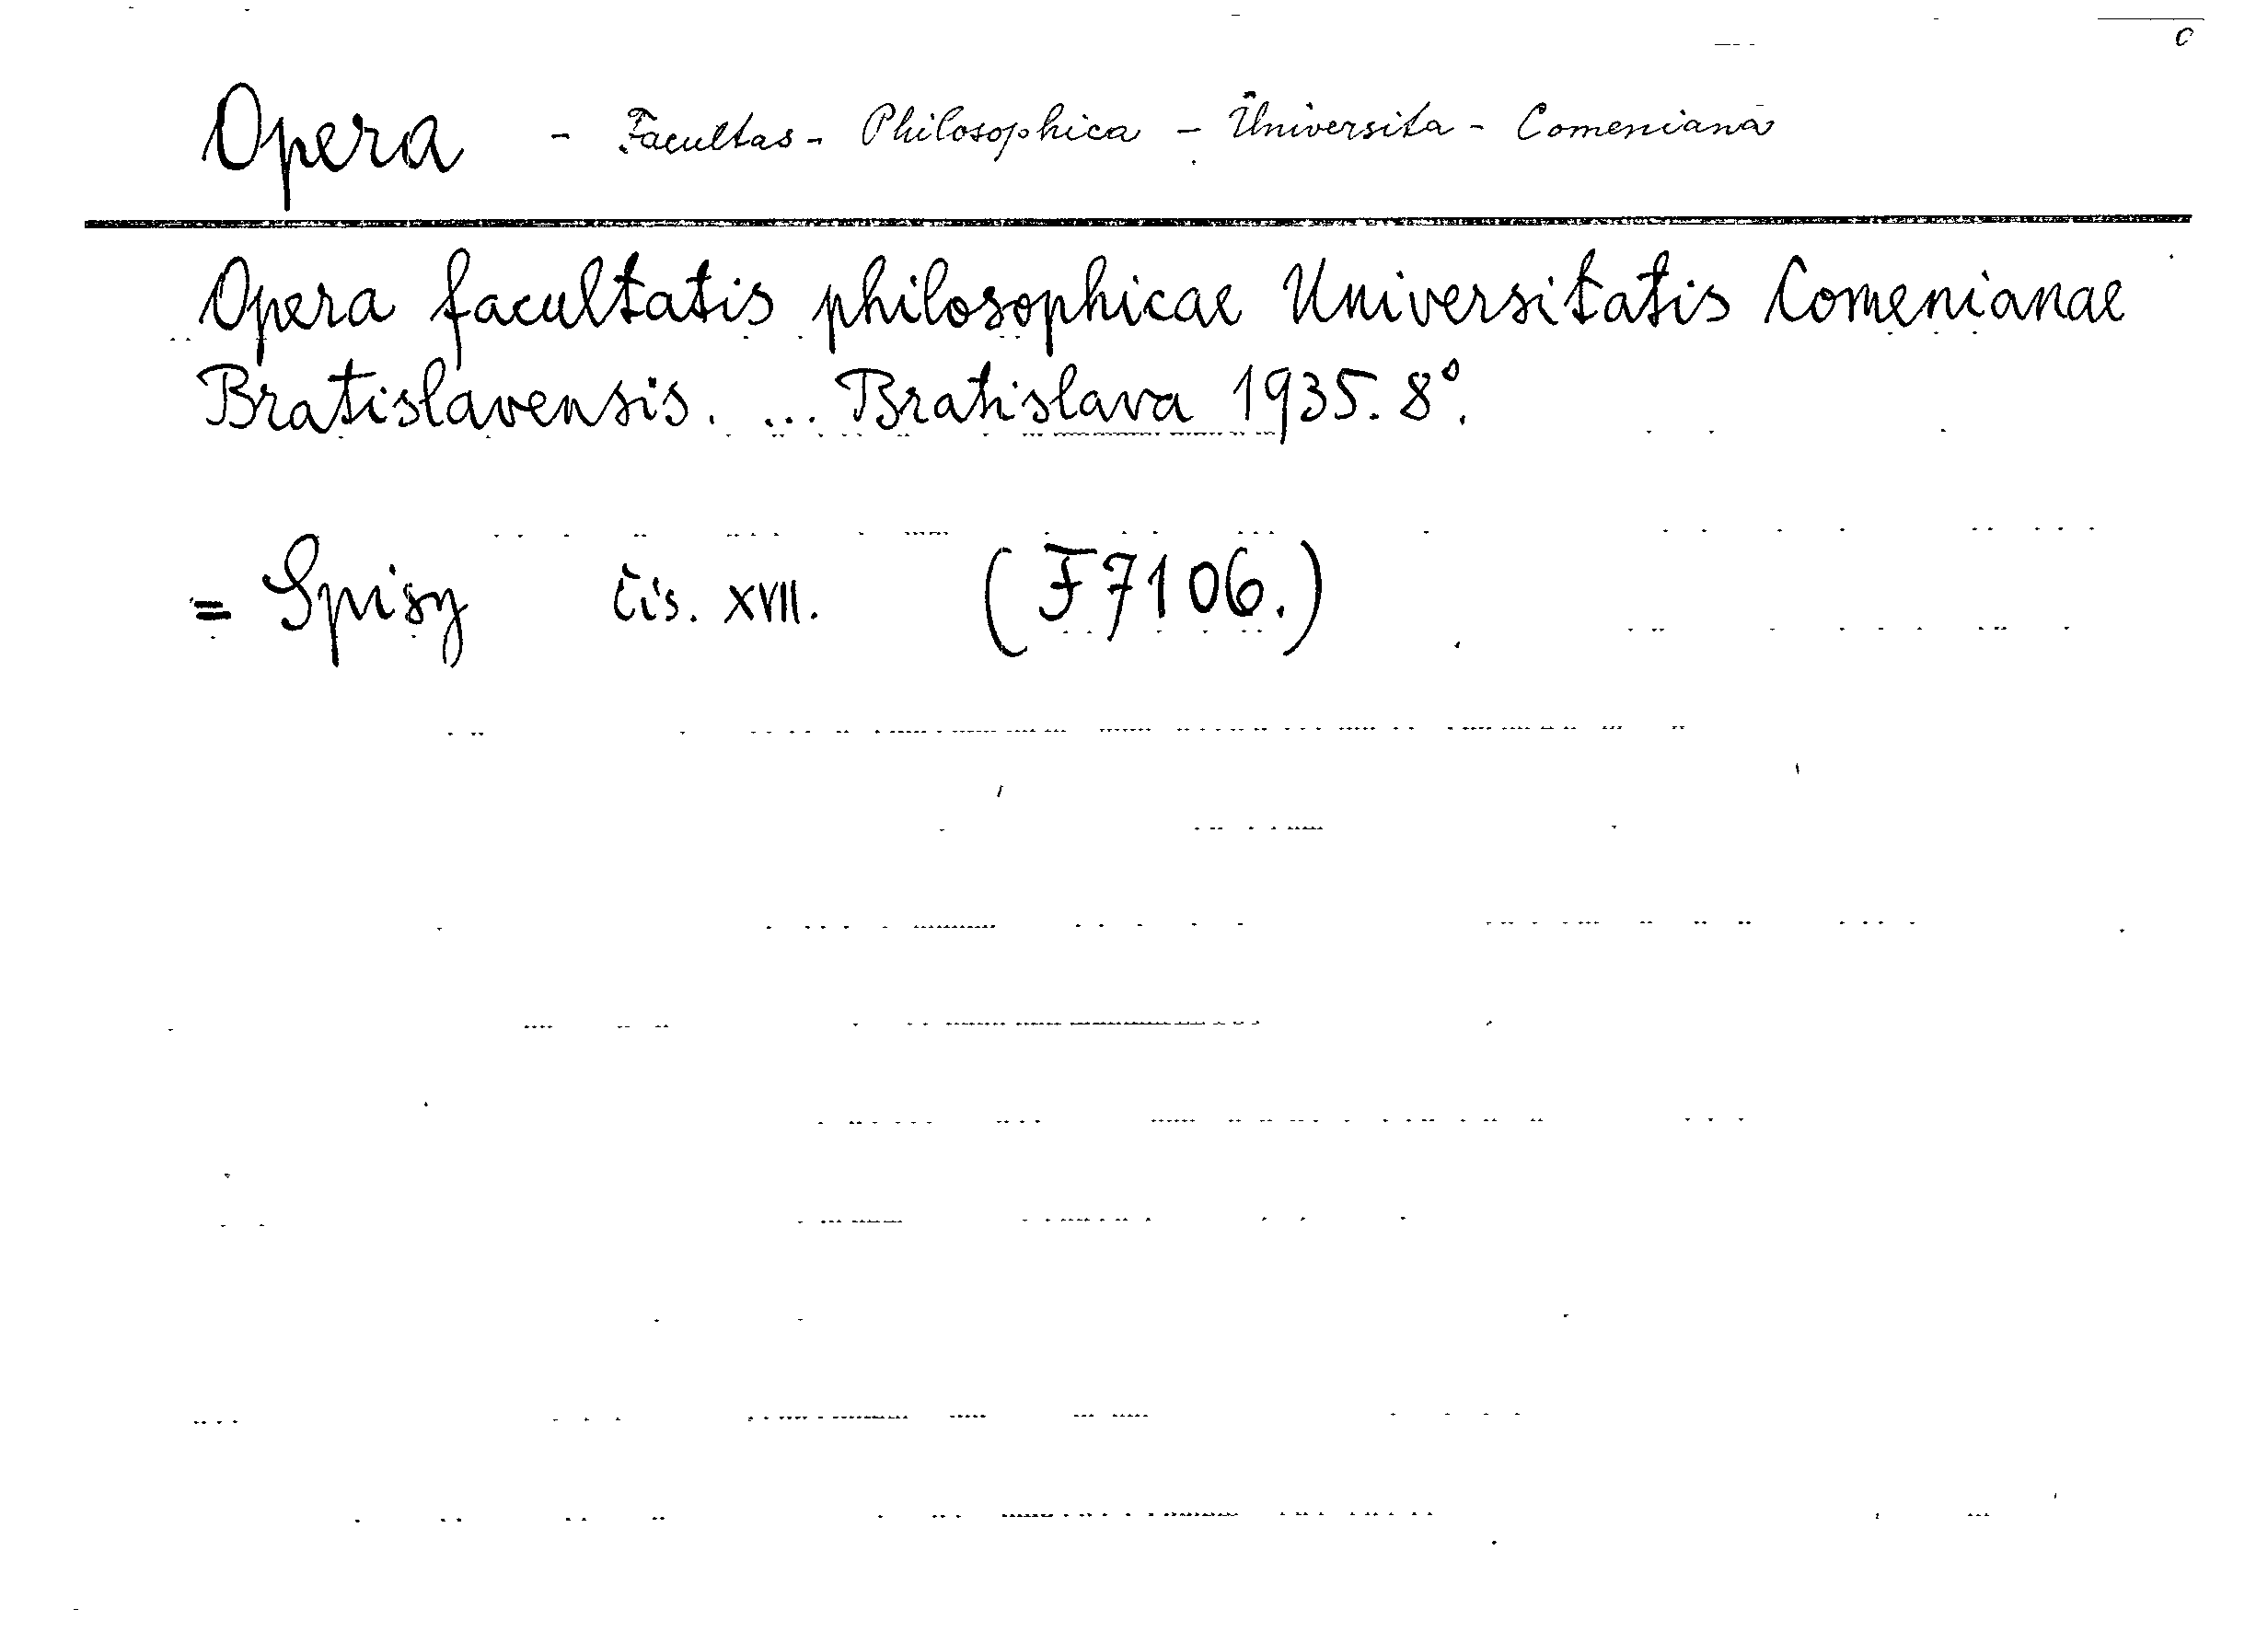 Opera - Facultas - Philosophica - Universita - Comeniana
Opera facultatis philosophicae Universitatis Comenianae
Bratislavensis. ... Bratislava 1935. 8°.
= Spisy čis. XVII. (F7106.)